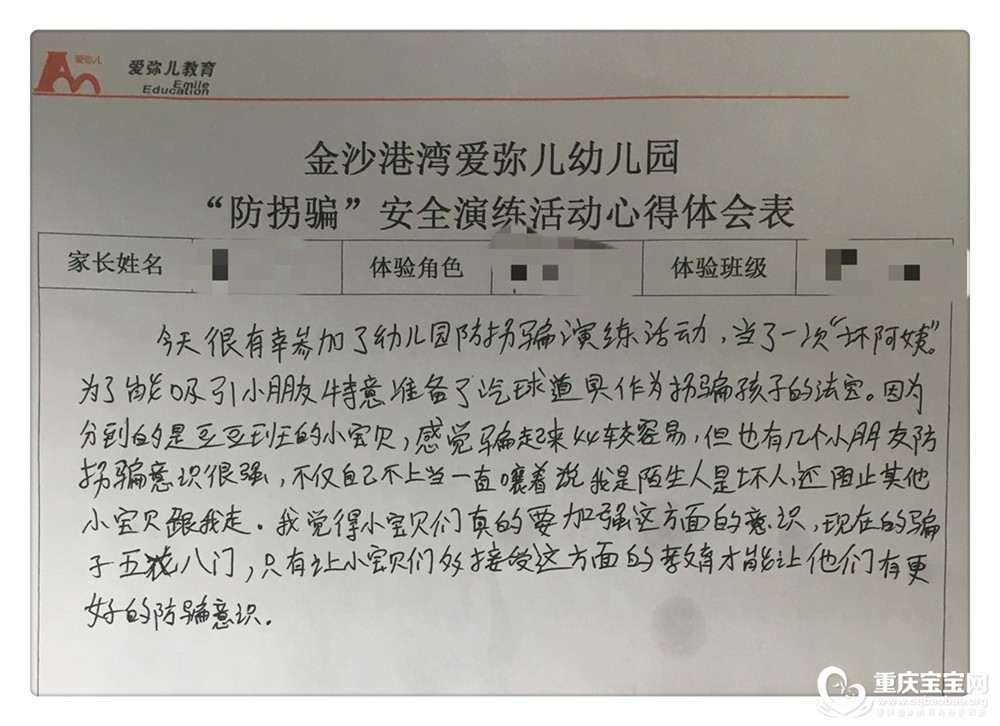 爱弥儿
爱弥儿教育
Emile
Education
金沙港湾爱弥儿幼儿园
“防拐骗”安全演练活动心得体会表
家长姓名 体验角色 体验班级
今天很有幸参加了幼儿园防拐骗演练活动，当了一次“坏阿姨”。
为了能吸引小朋友特意准备了汽球道具作为拐骗孩子的法宝。因为
分到的是豆豆班的小宝贝，感觉骗起来比较容易，但也有几个小朋友防
拐骗意识很强，不仅自己不上当一直嚷着说我是陌生人是坏人，还阻止其他
小宝贝跟我走。我觉得小宝贝们真的要加强这方面的意识，现在的骗
子五花八门，只有让小宝贝们多接受这方面的教育才能让他们有更
好的防骗意识。
重庆宝宝网
www.cqbaobao.org